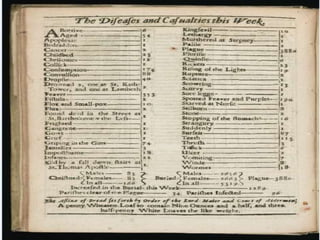 The Diseases and Casualties this Week.
Abortive 6
Aged 54
Apoplexie 1
Bedridden 1
Cancer 2
Childbed 23
Chrisomes 15
Collick 1
Consumption 174
Convulsion 88
Dropsie 40
Drowned 2, one at St. Kath.
Tower, and one at Lambeth 2
Feaver 353
Fistula 1
Flox and Small-pox 10
Flux 2
Found dead in the Street at
St. Bartholomew the Less 1
Frighted 1
Gangrene 1
Gowt 1
Grief 1
Griping in the Guts 74
Jaundies 3
Imposthume 18
Infants 21
Kild by a fall down stairs at
St. Thomas Apostle 1
Kingsevil 10
Lethargy 1
Murthered at Stepney 1
Palsie 2
Plague 3880
Plurisie 1
Quinsie 6
Rickets 23
Rising of the Lights 19
Rupture 2
Sciatica 1
Scowring 13
Scurvy 1
Sore legge 1
Spotted Feaver and Purples 190
Starved at Nurse 1
Stilborn 8
Stone 2
Stopping of the Stomach 16
Strangury 1
Suddenly 1
Surfeit 87
Teeth 113
Thrush 3
Tissick 6
Ulcer 2
Vomiting 7
Winde 8
Wormes 18
Males 83 Males 2656
Christned Females 83 Buried Females 2663 Plague 3880
In all 166 In all 5319
Increased in the Burials this Week 1289
Parishes clear of the Plague 34 Parishes Infected 96
The Assize of Bread set forth by Order of the Lord Maior and Court of Aldermen,
A penny Wheaten Loaf to contain Nine Ounces and a half, and three
half-penny White Loaves the like weight.